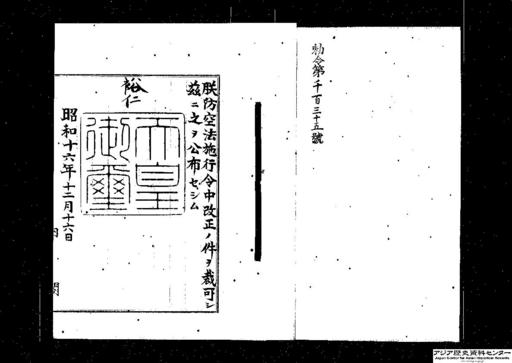 勅令第千百三十五號
朕防空法施行令中改正ノ件ヲ裁可シ
茲ニ之ヲ公布セシム
裕仁
天皇
御璽
昭和十六年十二月十六日
内閣
アジア歴史資料センター
Japan Center for Asian Historical Records